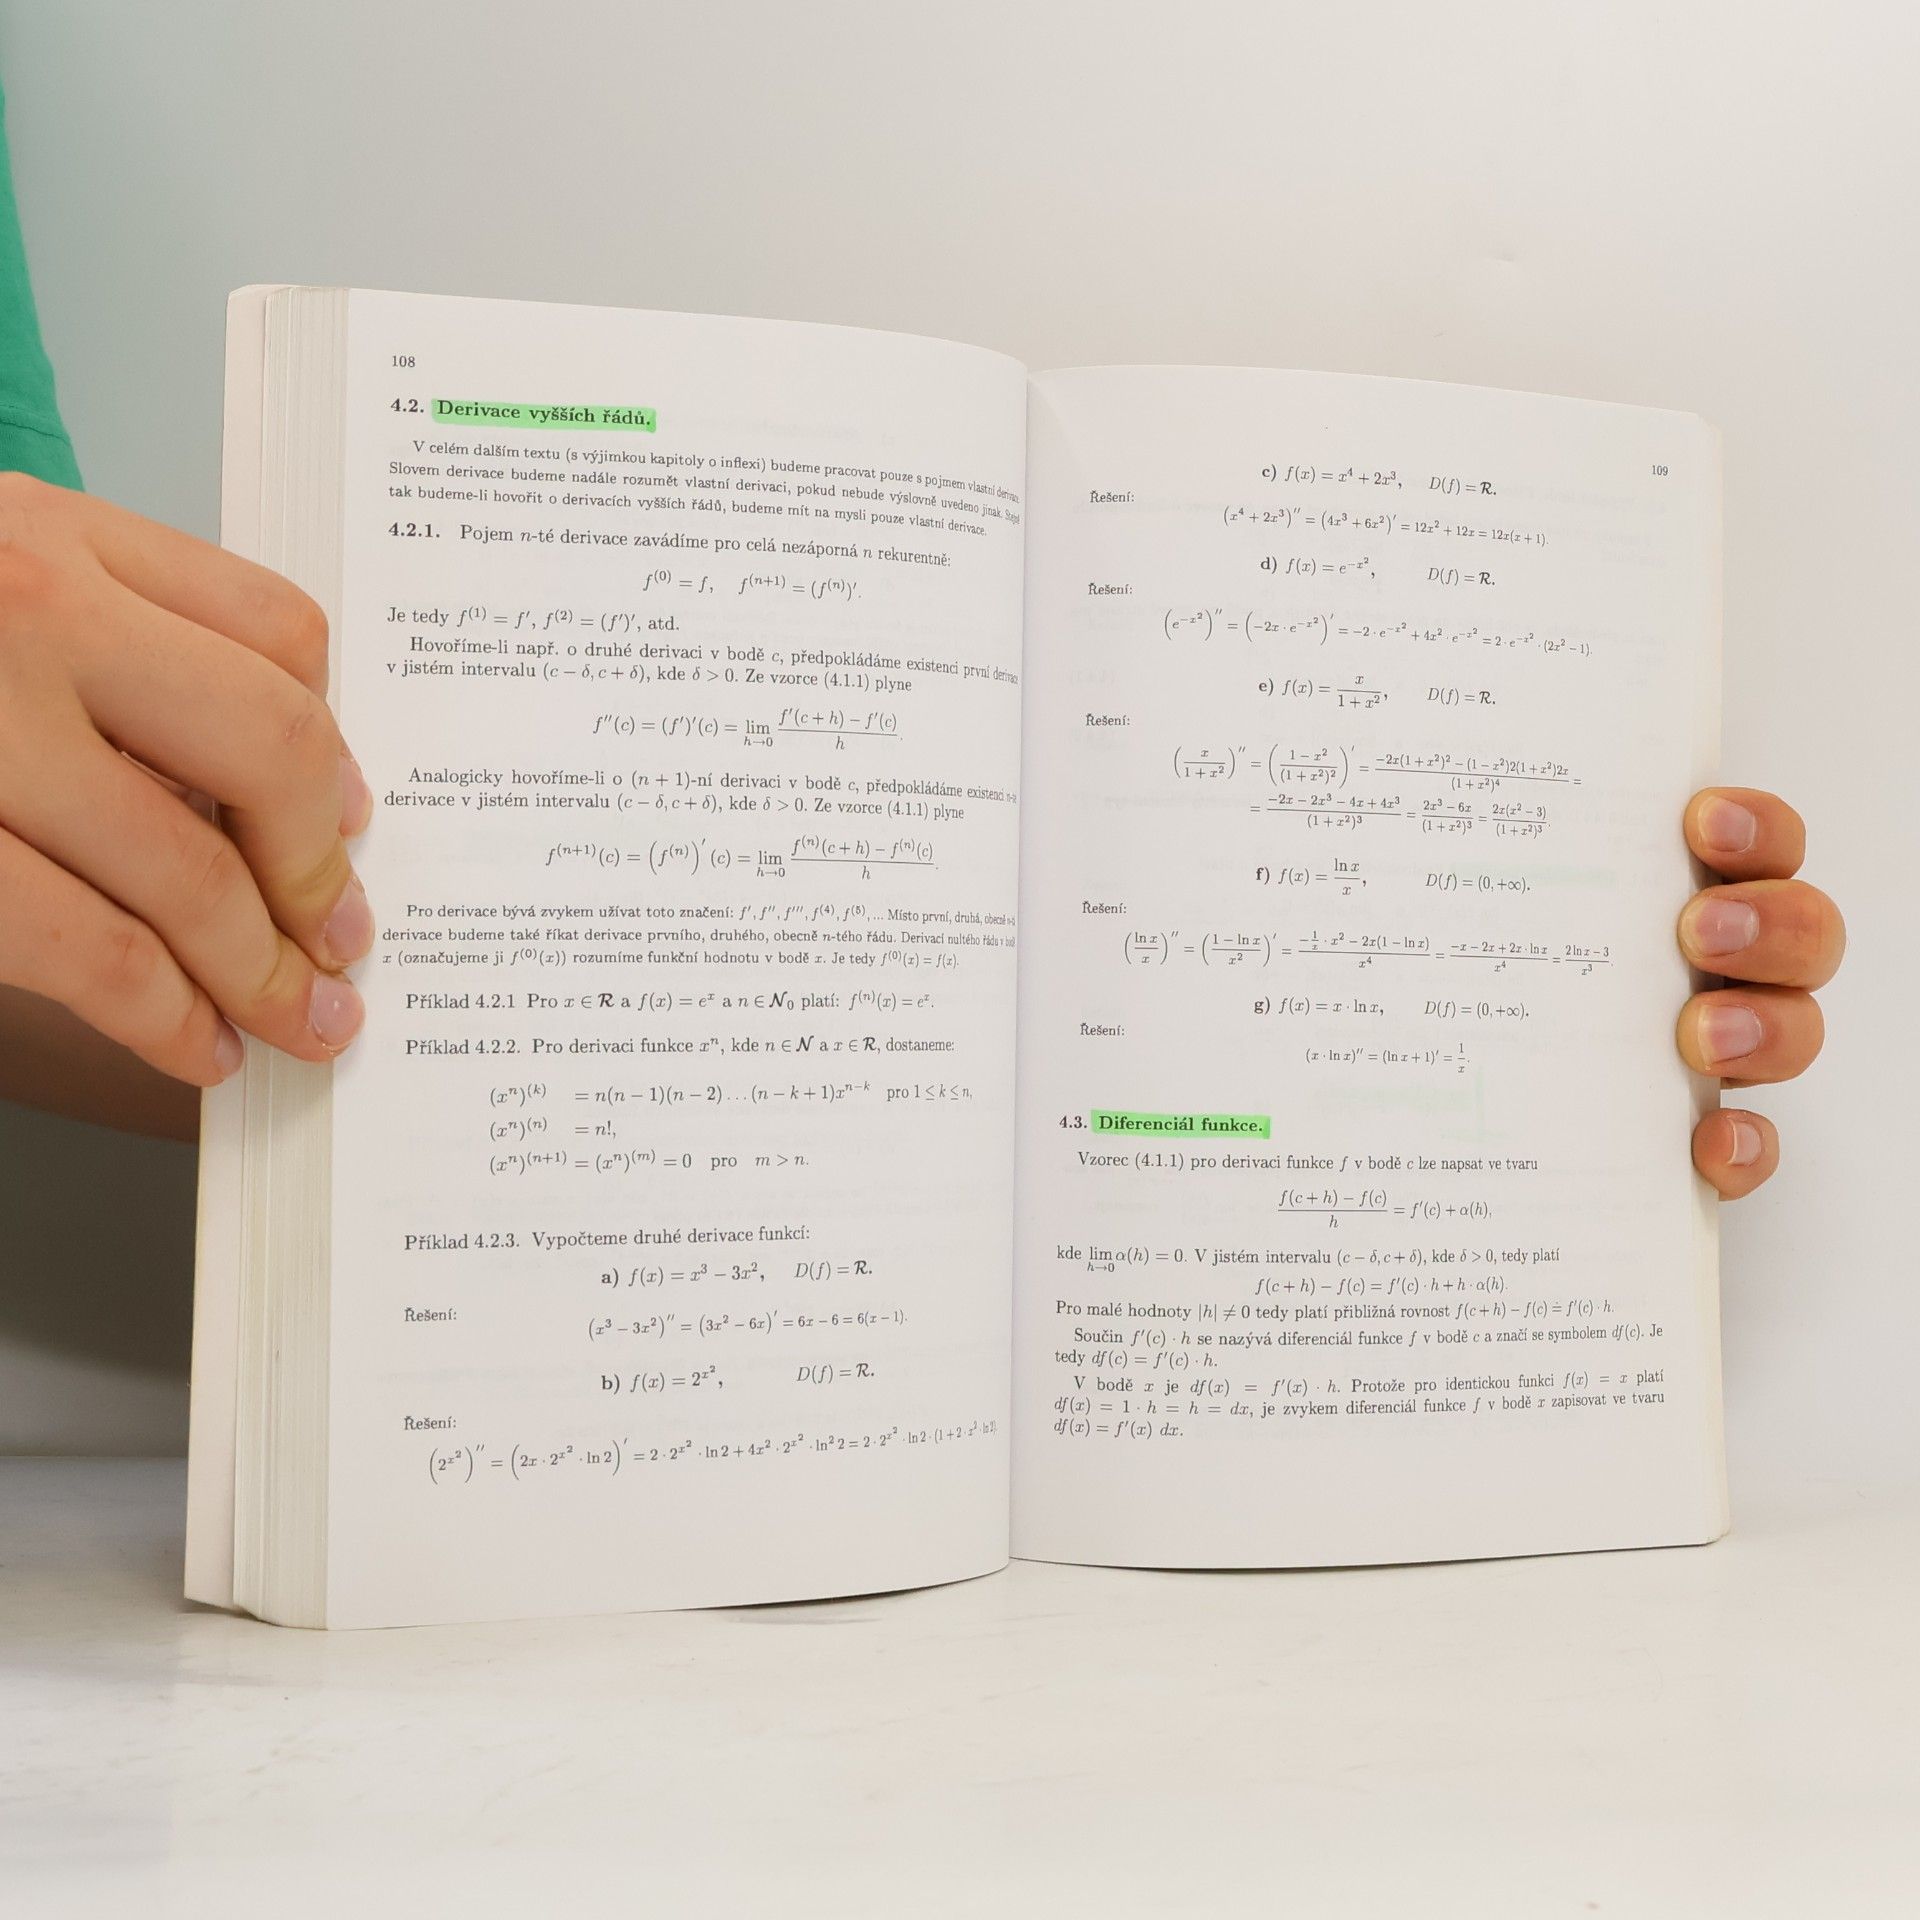 108
4.2. Derivace vyšších řádů.
V celém dalším textu (s výjimkou kapitoly o inflexi) budeme pracovat pouze s pojmem vlastní derivace.
Slovem derivace budeme nadále rozumět vlastní derivaci, pokud nebude výslovně uvedeno jinak. Stejně
tak budeme-li hovořit o derivacích vyšších řádů, budeme mít na mysli pouze vlastní derivace.
4.2.1. Pojem n-té derivace zavádíme pro celá nezáporná n rekurentně:
f⁽⁰⁾ = f, f⁽ⁿ⁺¹⁾ = (f⁽ⁿ⁾)′.
Je tedy f⁽¹⁾ = f′, f⁽²⁾ = (f′)′, atd.
Hovoříme-li např. o druhé derivaci v bodě c, předpokládáme existenci první derivace
v jistém intervalu (c − δ, c + δ), kde δ > 0. Ze vzorce (4.1.1) plyne
f″(c) = (f′)′(c) = lim_{h→0} (f′(c + h) − f′(c))/h.
Analogicky hovoříme-li o (n + 1)-ní derivaci v bodě c, předpokládáme existenci n-té
derivace v jistém intervalu (c − δ, c + δ), kde δ > 0. Ze vzorce (4.1.1) plyne
f⁽ⁿ⁺¹⁾(c) = (f⁽ⁿ⁾)′(c) = lim_{h→0} (f⁽ⁿ⁾(c + h) − f⁽ⁿ⁾(c))/h.
Pro derivace bývá zvykem užívat toto značení: f′, f″, f‴, f⁽⁴⁾, f⁽⁵⁾, ... Místo první, druhá, obecně n-tá
derivace budeme také říkat derivace prvního, druhého, obecně n-tého řádu. Derivací nultého řádu v bodě
x (označujeme ji f⁽⁰⁾(x)) rozumíme funkční hodnotu v bodě x. Je tedy f⁽⁰⁾(x) = f(x).
Příklad 4.2.1 Pro x ∈ R a f(x) = eˣ a n ∈ N₀ platí: f⁽ⁿ⁾(x) = eˣ.
Příklad 4.2.2. Pro derivaci funkce xⁿ, kde n ∈ N a x ∈ R, dostaneme:
(xⁿ)⁽ᵏ⁾ = n(n − 1)(n − 2) . . . (n − k + 1)xⁿ⁻ᵏ pro 1 ≤ k ≤ n,
(xⁿ)⁽ⁿ⁾ = n!,
(xⁿ)⁽ⁿ⁺¹⁾ = (xⁿ)⁽ᵐ⁾ = 0 pro m > n.
Příklad 4.2.3. Vypočteme druhé derivace funkcí:
a) f(x) = x³ − 3x², D(f) = R.
Řešení:
(x³ − 3x²)″ = (3x² − 6x)′ = 6x − 6 = 6(x − 1).
b) f(x) = 2^{x²}, D(f) = R.
Řešení:
(2^{x²})″ = (2x · 2^{x²} · ln 2)′ = 2 · 2^{x²} · ln 2 + 4x² · 2^{x²} · ln² 2 = 2 · 2^{x²} · ln 2 · (1 + 2 · x² · ln 2).
109
c) f(x) = x⁴ + 2x³, D(f) = R.
Řešení:
(x⁴ + 2x³)″ = (4x³ + 6x²)′ = 12x² + 12x = 12x(x + 1).
d) f(x) = e^{−x²}, D(f) = R.
Řešení:
(e^{−x²})″ = (−2x · e^{−x²})′ = −2 · e^{−x²} + 4x² · e^{−x²} = 2 · e^{−x²} · (2x² − 1).
e) f(x) = x/(1 + x²), D(f) = R.
Řešení:
(x/(1 + x²))″ = ((1 − x²)/(1 + x²)²)′ = (−2x(1 + x²)² − (1 − x²)2(1 + x²)2x)/(1 + x²)⁴ =
= (−2x − 2x³ − 4x + 4x³)/(1 + x²)³ = (2x³ − 6x)/(1 + x²)³ = 2x(x² − 3)/(1 + x²)³.
f) f(x) = ln x/x, D(f) = (0, +∞).
Řešení:
(ln x/x)″ = ((1 − ln x)/x²)′ = (−1/x · x² − 2x(1 − ln x))/x⁴ = (−x − 2x + 2x · ln x)/x⁴ = (2 ln x − 3)/x³.
g) f(x) = x · ln x, D(f) = (0, +∞).
Řešení:
(x · ln x)″ = (ln x + 1)′ = 1/x.
4.3. Diferenciál funkce.
Vzorec (4.1.1) pro derivaci funkce f v bodě c lze napsat ve tvaru
(f(c + h) − f(c))/h = f′(c) + α(h),
kde lim_{h→0} α(h) = 0. V jistém intervalu (c − δ, c + δ), kde δ > 0, tedy platí
f(c + h) − f(c) = f′(c) · h + h · α(h).
Pro malé hodnoty |h| ≠ 0 tedy platí přibližná rovnost f(c + h) − f(c) ≐ f′(c) · h.
Součin f′(c) · h se nazývá diferenciál funkce f v bodě c a značí se symbolem df(c). Je
tedy df(c) = f′(c) · h.
V bodě x je df(x) = f′(x) · h. Protože pro identickou funkci f(x) = x platí
df(x) = 1 · h = h = dx, je zvykem diferenciál funkce f v bodě x zapisovat ve tvaru
df(x) = f′(x) dx.